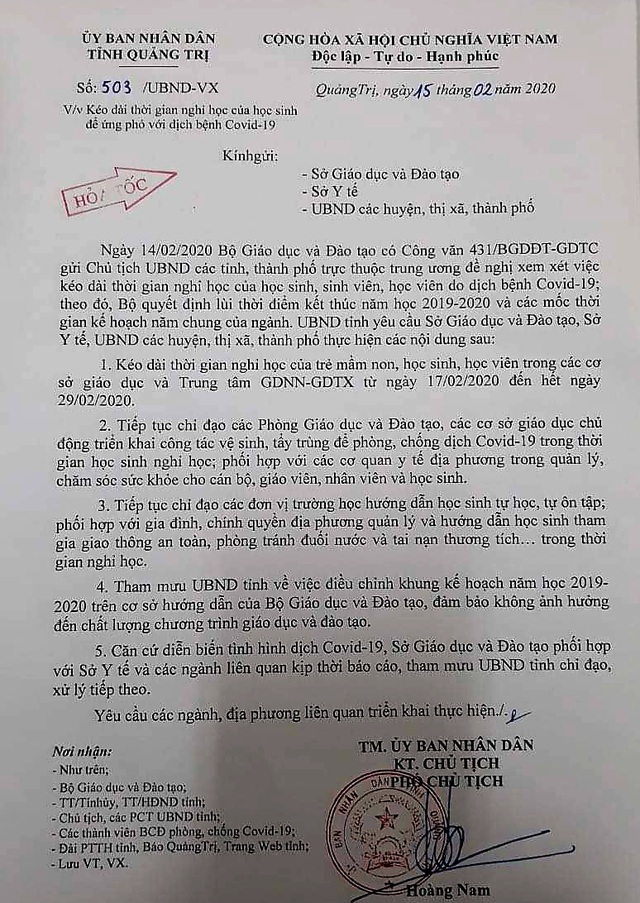 ỦY BAN NHÂN DÂN
TỈNH QUẢNG TRỊ
CỘNG HÒA XÃ HỘI CHỦ NGHĨA VIỆT NAM
Độc lập - Tự do - Hạnh phúc
Số: 503 /UBND-VX
QuảngTrị, ngày 15 tháng 02 năm 2020
V/v Kéo dài thời gian nghỉ học của học sinh
để ứng phó với dịch bệnh Covid-19
HỎA TỐC
Kínhgửi:
- Sở Giáo dục và Đào tạo
- Sở Y tế
- UBND các huyện, thị xã, thành phố
Ngày 14/02/2020 Bộ Giáo dục và Đào tạo có Công văn 431/BGDĐT-GDTC
gửi Chủ tịch UBND các tỉnh, thành phố trực thuộc trung ương đề nghị xem xét việc
kéo dài thời gian nghỉ học của học sinh, sinh viên, học viên do dịch bệnh Covid-19;
theo đó, Bộ quyết định lùi thời điểm kết thúc năm học 2019-2020 và các mốc thời
gian kế hoạch năm chung của ngành. UBND tỉnh yêu cầu Sở Giáo dục và Đào tạo, Sở
Y tế, UBND các huyện, thị xã, thành phố thực hiện các nội dung sau:
1. Kéo dài thời gian nghỉ học của trẻ mầm non, học sinh, học viên trong các cơ
sở giáo dục và Trung tâm GDNN-GDTX từ ngày 17/02/2020 đến hết ngày
29/02/2020.
2. Tiếp tục chỉ đạo các Phòng Giáo dục và Đào tạo, các cơ sở giáo dục chủ
động triển khai công tác vệ sinh, tẩy trùng để phòng, chống dịch Covid-19 trong thời
gian học sinh nghỉ học; phối hợp với các cơ quan y tế địa phương trong quản lý,
chăm sóc sức khỏe cho cán bộ, giáo viên, nhân viên và học sinh.
3. Tiếp tục chỉ đạo các đơn vị trường học hướng dẫn học sinh tự học, tự ôn tập;
phối hợp với gia đình, chính quyền địa phương quản lý và hướng dẫn học sinh tham
gia giao thông an toàn, phòng tránh đuối nước và tai nạn thương tích… trong thời
gian nghỉ học.
4. Tham mưu UBND tỉnh về việc điều chỉnh khung kế hoạch năm học 2019-
2020 trên cơ sở hướng dẫn của Bộ Giáo dục và Đào tạo, đảm bảo không ảnh hưởng
đến chất lượng chương trình giáo dục và đào tạo.
5. Căn cứ diễn biến tình hình dịch Covid-19, Sở Giáo dục và Đào tạo phối hợp
với Sở Y tế và các ngành liên quan kịp thời báo cáo, tham mưu UBND tỉnh chỉ đạo,
xử lý tiếp theo.
Yêu cầu các ngành, địa phương liên quan triển khai thực hiện./.
Nơi nhận:
- Như trên;
- Bộ Giáo dục và Đào tạo;
- TT/Tỉnhủy, TT/HĐND tỉnh;
- Chủ tịch, các PCT UBND tỉnh;
- Các thành viên BCĐ phòng, chống Covid-19;
- Đài PTTH tỉnh, Báo QuảngTrị, Trang Web tỉnh;
- Lưu VT, VX.
TM. ỦY BAN NHÂN DÂN
KT. CHỦ TỊCH
PHÓ CHỦ TỊCH
Hoàng Nam